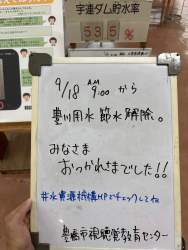 宇連ダム貯水率
53.5%
9/18 AM 9:00 から
豊川用水 節水 解除。
みなさま
おつかれさまでした!!
#水資源機構HPでチェックしてね
豊橋市視聴覚教育センター